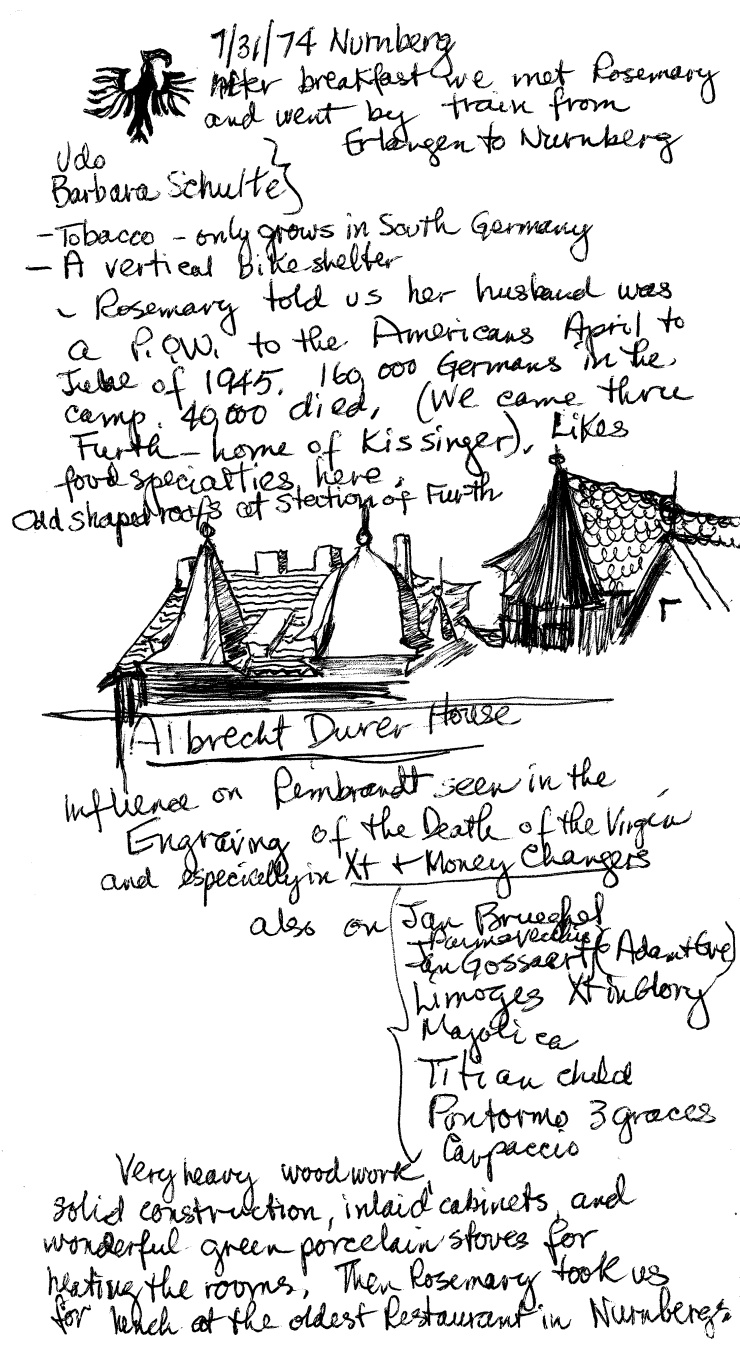 7/31/74 Nurnberg
After breakfast we met Rosemary
and went by train from
Erlangen to Nurnberg
Udo
Barbara Schulte
- Tobacco - only grows in South Germany
- A vertical Bike shelter
- Rosemary told us her husband was
a P.O.W. to the Americans April to
June of 1945. 160,000 Germans in the
camp. 40,000 died. (We came thru
Furth - home of Kissinger). Likes
food specialties here.
Odd shaped roofs at Station of Furth
Albrecht Durer House
Influence on Rembrandt seen in the
Engraving of the Death of the Virgin
and especially in Xt + Money Changers
also on Jan Brueghel
Jan Gossaert (Adam + Eve)
Limoges Xt in Glory
Majolica
Titian child
Pontormo 3 graces
Carpaccio
Very heavy woodwork,
solid construction, inlaid cabinets, and
wonderful green porcelain stoves for
heating the rooms. Then Rosemary took us
for lunch at the oldest Restaurant in Nurnbergs